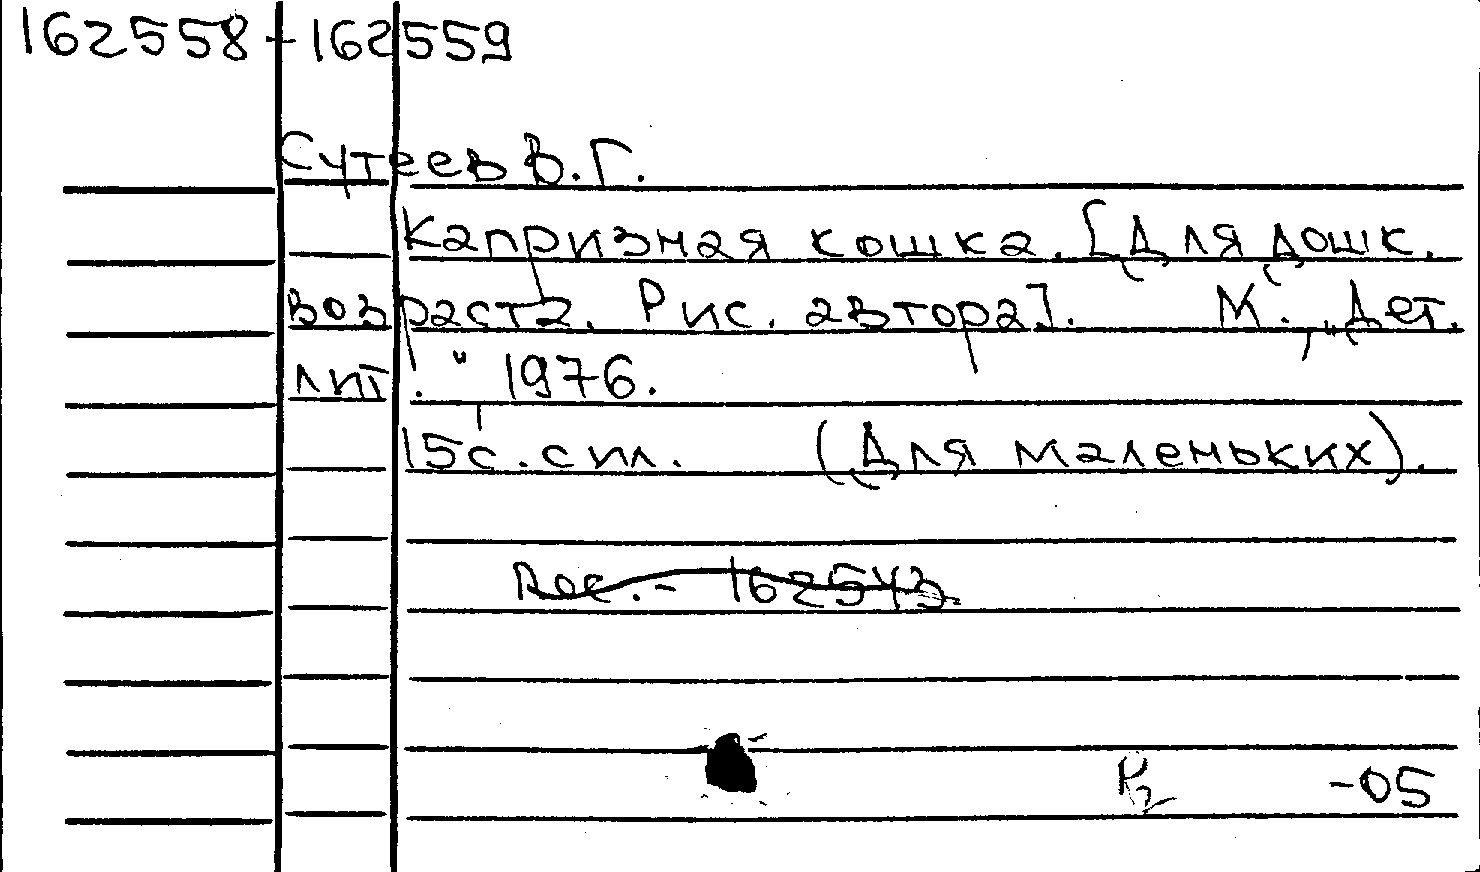 162558-162559
Сутеев В.Г.
Капризная кошка. [Для дошк.
возраста. Рис. автора]. М., "Дет.
лит." 1976.
15с. с ил. (Для маленьких).
162543
-05